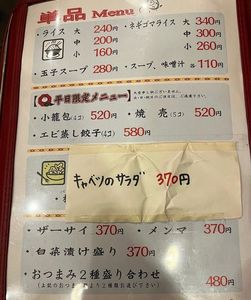 単品 Menu
・ライス 大 240円 ・ネギゴマライス 大 340円
中 200円 中 300円
小 160円 小 260円
・玉子スープ 280円 ・スープ、味噌汁 各110円
平日限定メニュー
・小籠包(4コ) 520円 ・焼売(5コ) 520円
・エビ蒸し餃子(4コ) 580円
キャベツのサラダ 370円
・ザーサイ 370円 ・メンマ 370円
・白菜漬け盛り 370円
・おつまみ2種盛り合わせ 480円